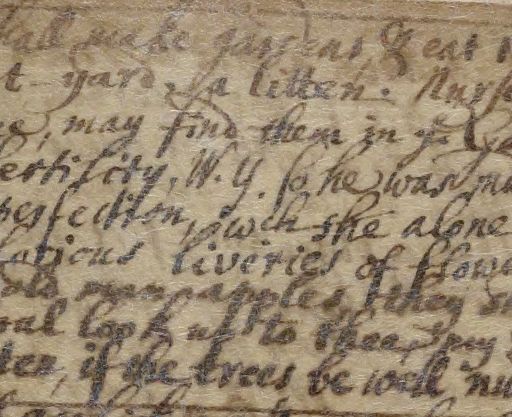 hall make gardens, & eat t
t yard, a litten. Nurs
may find them in ye
ertility, W.Y. so he was ma
perfection, wch she alone
lorious liveries of flowe
old man apples, they s
ral look up to thee, my
ten, if the trees be well nu